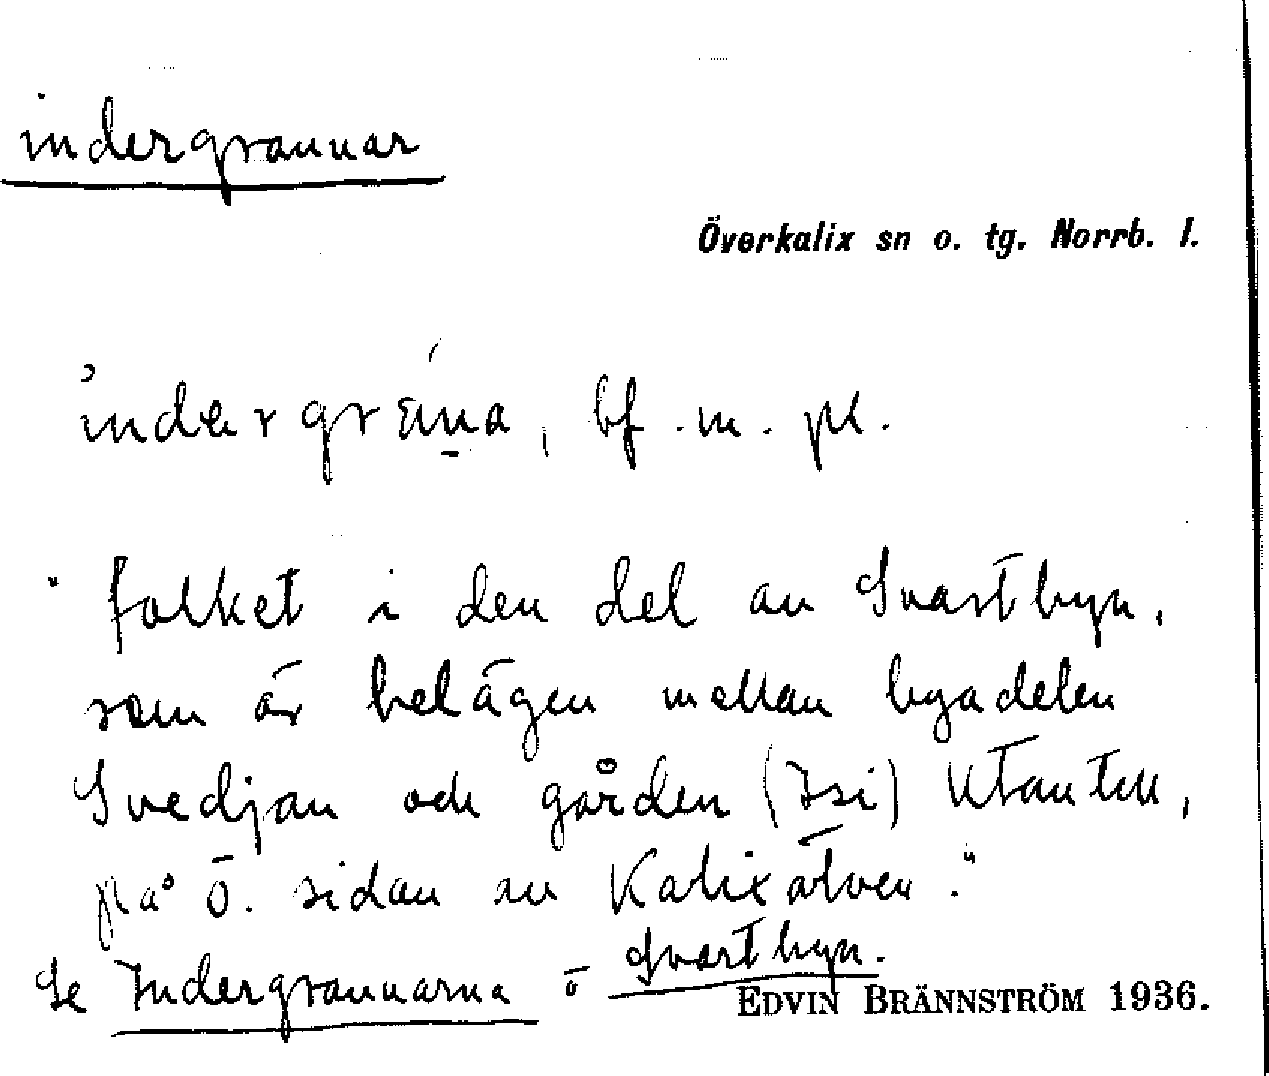 indergrannar
Överkalix sn o. tg. Norrb. l.
indergräna, bf. m. pl.
"folket i den del av Svartbyn,
som är belägen mellan byadelen
Svedjan och gården (Isi) Utantill,
på ö. sidan av Kalixälven."
Se Indergrannarna ö Svartbyn.
EDVIN BRÄNNSTRÖM 1936.